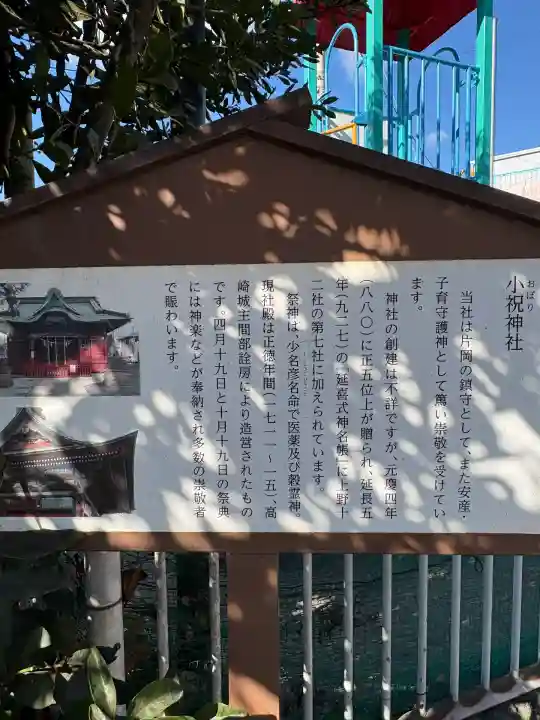 小祝神社
おぼり
　当社は片岡の鎮守として、また安産・
子育守護神として篤い崇敬を受けてい
ます。
　神社の創建は不詳ですが、元慶四年
（八八〇）に正五位上が贈られ、延長五
年（九二七）の「延喜式神名帳」に上野十
二社の第七社に加えられています。
　祭神は、少名彦名命で医薬及び穀霊神。
現社殿は正徳年間（一七一一〜一五）、高
崎城主間部詮房により造営されたもの
です。四月十九日と十月十九日の祭典
には神楽などが奉納され多数の崇敬者
で賑わいます。